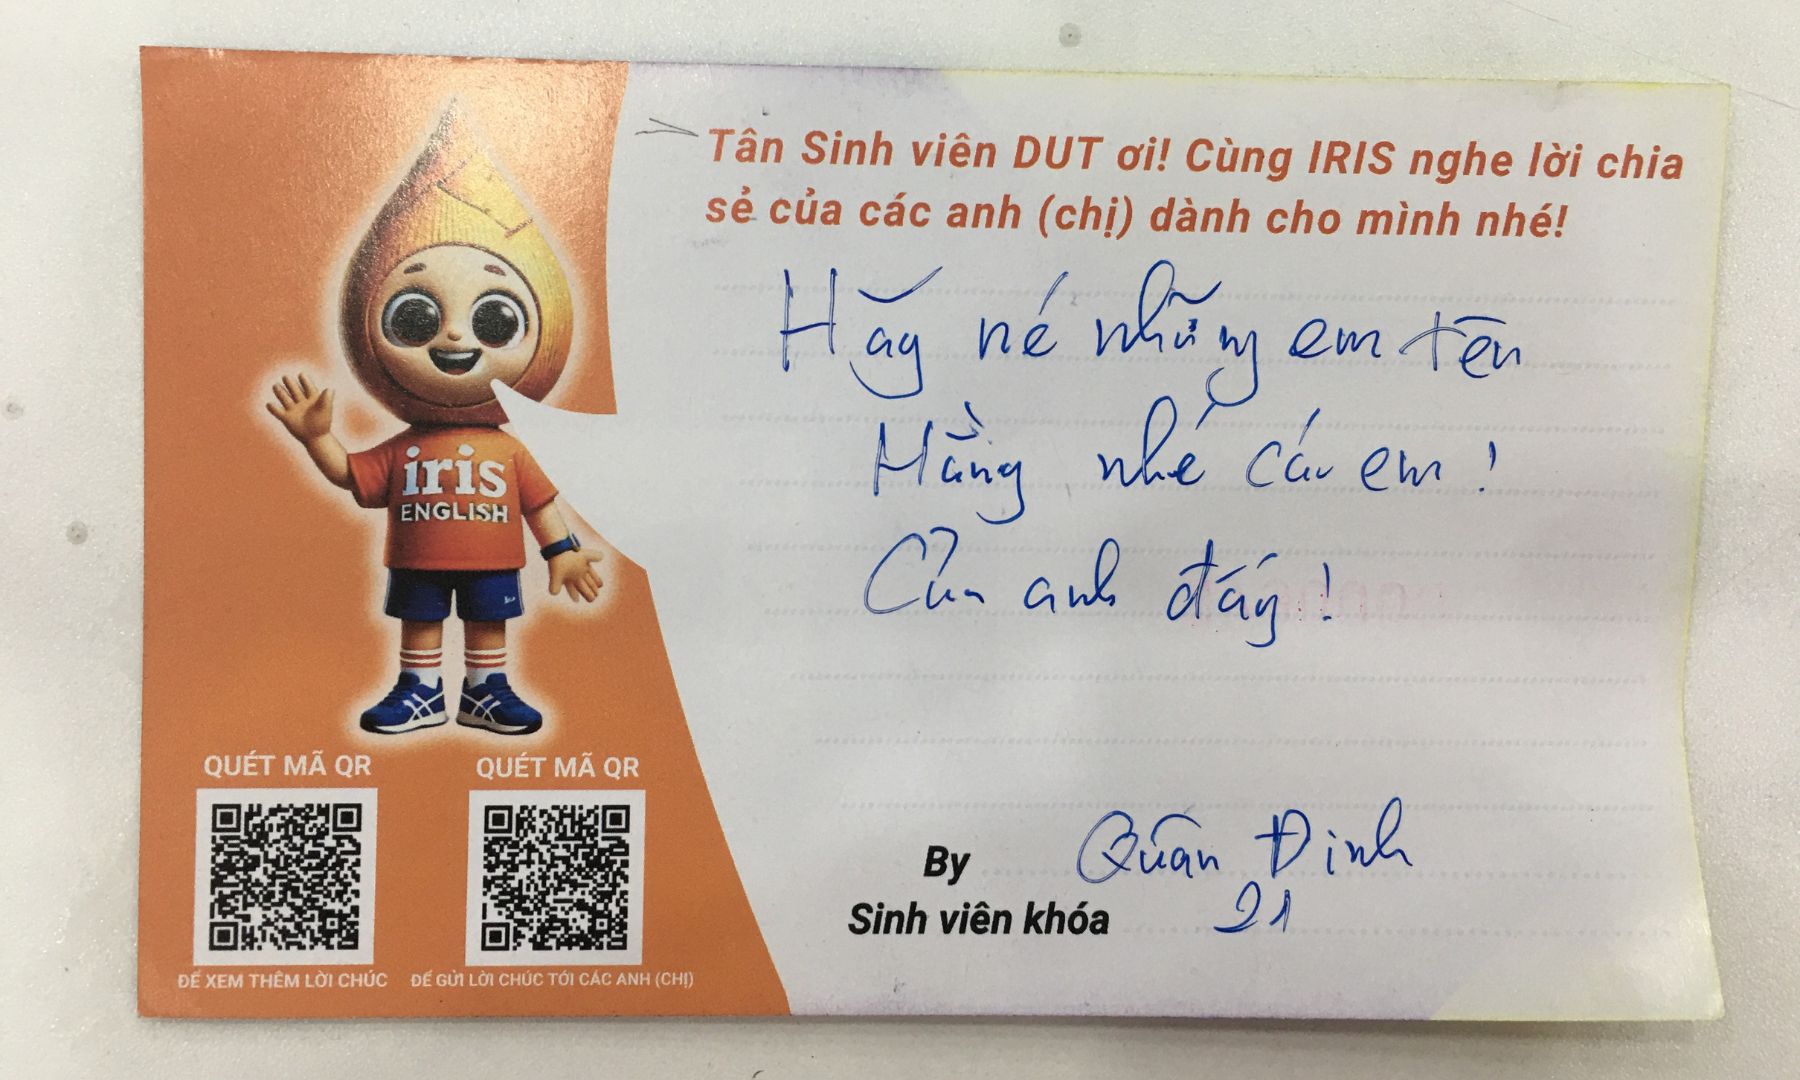 Tân Sinh viên DUT ơi! Cùng IRIS nghe lời chia
sẻ của các anh (chị) dành cho mình nhé!
Hãy né những em tên
Hằng nhé các em!
Của anh đấy!
iris
ENGLISH
By Quân Đinh
Sinh viên khóa 21
QUÉT MÃ QR
QUÉT MÃ QR
ĐỂ XEM THÊM LỜI CHÚC
ĐỂ GỬI LỜI CHÚC TỚI CÁC ANH (CHỊ)